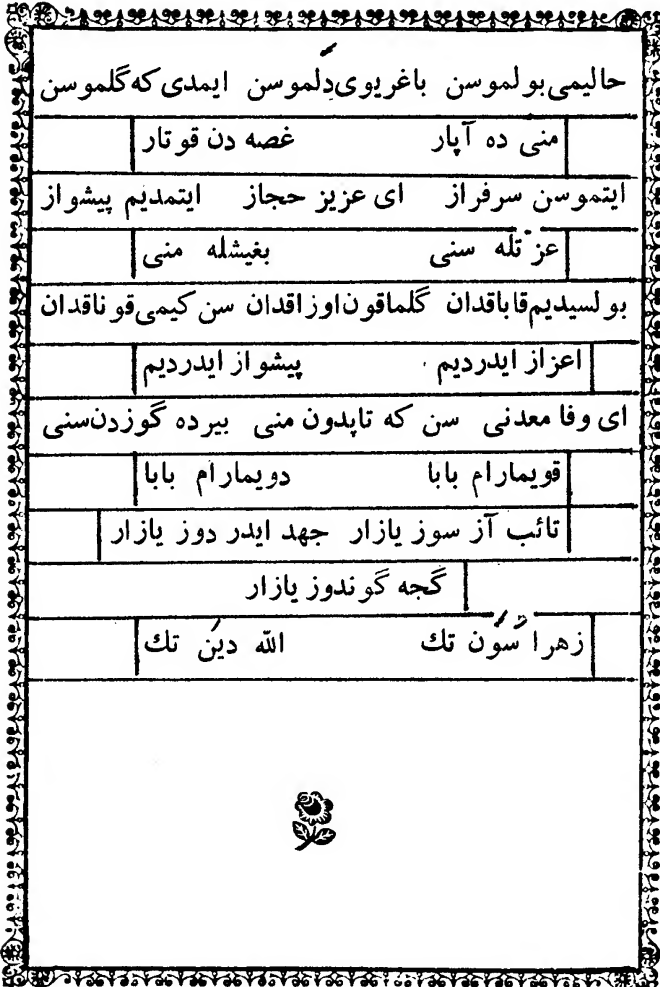 حالیمی بولموسن باغریوی دلموسن ایمدی که گلموسن
منی ده آپار غصه دن قوتار
ایتموسن سرفراز ای عزیز حجاز ایتمدیم پیشواز
عزتله سنی بغیشله منی
بولسیدیم قاباقدان گلماقون اوزاقدان سن کیمی قوناقدان
اعزاز ایدردیم پیشواز ایدردیم
ای وفا معدنی سن که تاپدون منی بیرده گوزدن سنی
قویمارام بابا دویمارام بابا
تائب آز سوز یازار جهد ایدر دوز یازار
گجه گوندوز یازار
زهرا سَون تك الله دیَن تك